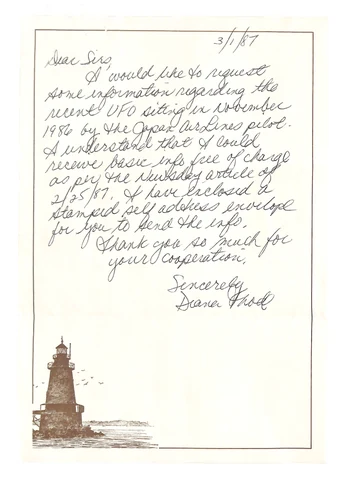 3/1/87
Dear Sirs,
I would like to request
some information regarding the
recent UFO sitting in November
1986 by the Japan AirLines pilot.
I understand that I could
receive basic info free of charge
as per the Newsday article of
2/25/87. I have enclosed a
stamped self address envelope
for you to send the info.
Thank you so much for
your cooperation.
Sincerely
Diana